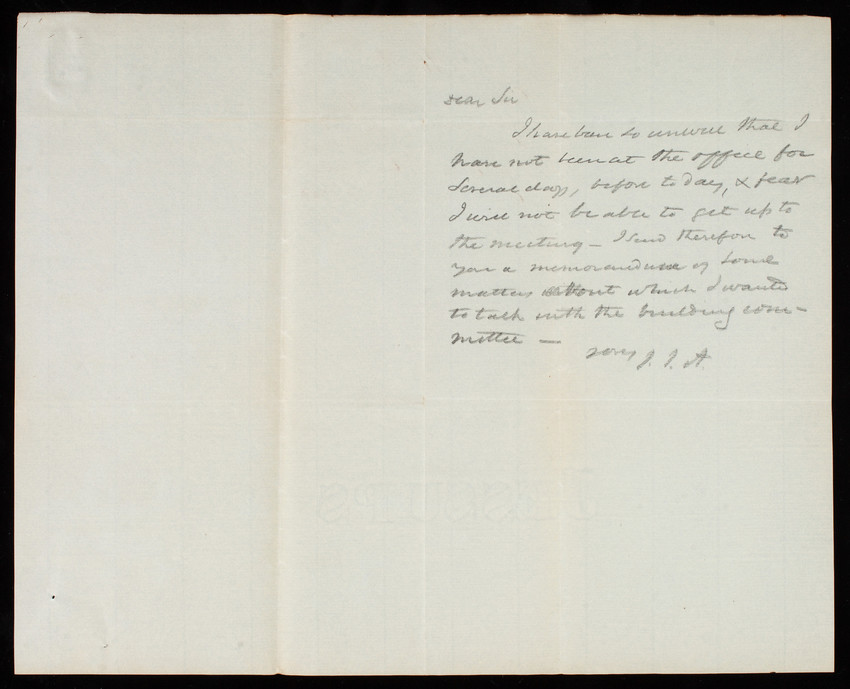 Dear Sir
I have been so unwell that I
have not been at the office for
several days, before to day, & fear
I will not be able to get up to
the meeting - I send therefore to
you a memorandum of some
matters about which I wanted
to talk with the building com-
mittee -
yours J. J. A.
JESSUPS